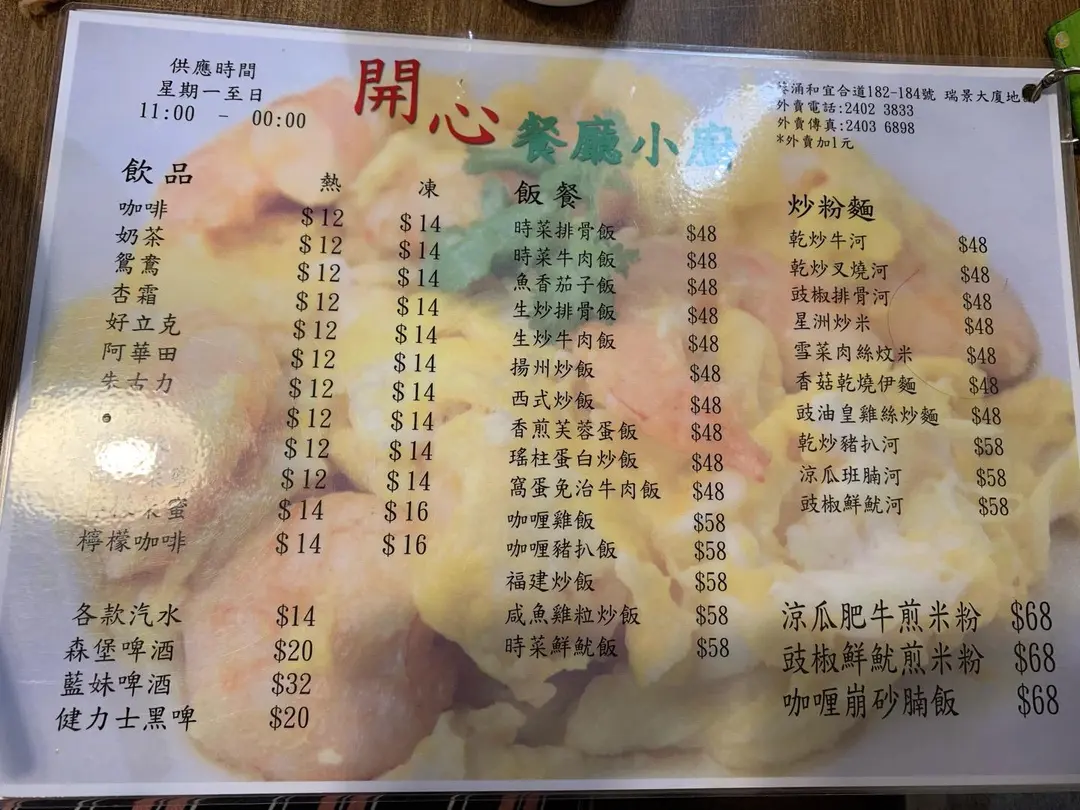 供應時間
星期一至日
11:00 - 00:00
開心餐廳小廚
葵涌和宜合道182-184號 瑞景大廈地
外賣電話:2402 3833
外賣傳真:2403 6898
*外賣加1元
飲品 熱 凍
咖啡 $12 $14
奶茶 $12 $14
鴛鴦 $12 $14
杏霜 $12 $14
好立克 $12 $14
阿華田 $12 $14
朱古力 $12 $14
$12 $14
$12 $14
$12 $14
蜜 $14 $16
檸檬咖啡 $14 $16
各款汽水 $14
森堡啤酒 $20
藍妹啤酒 $32
健力士黑啤 $20
飯餐
時菜排骨飯 $48
時菜牛肉飯 $48
魚香茄子飯 $48
生炒排骨飯 $48
生炒牛肉飯 $48
揚州炒飯 $48
西式炒飯 $48
香煎芙蓉蛋飯 $48
瑤柱蛋白炒飯 $48
窩蛋免治牛肉飯 $48
咖喱雞飯 $58
咖喱豬扒飯 $58
福建炒飯 $58
咸魚雞粒炒飯 $58
時菜鮮魷飯 $58
炒粉麵
乾炒牛河 $48
乾炒叉燒河 $48
豉椒排骨河 $48
星洲炒米 $48
雪菜肉絲炆米 $48
香菇乾燒伊麵 $48
豉油皇雞絲炒麵 $48
乾炒豬扒河 $58
涼瓜班腩河 $58
豉椒鮮魷河 $58
涼瓜肥牛煎米粉 $68
豉椒鮮魷煎米粉 $68
咖喱崩砂腩飯 $68